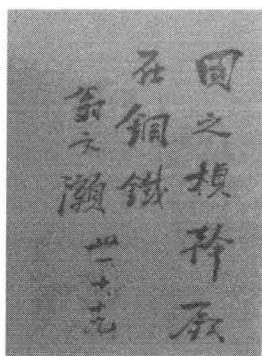 國之楨幹厥
在銅鐵
翁文灝 卅一、十、九